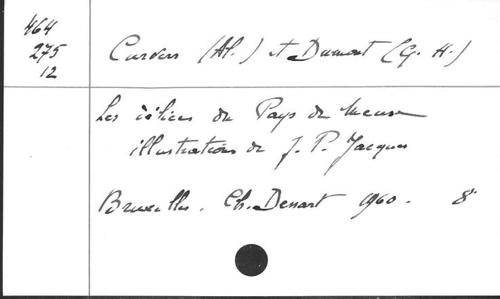 464
275
12
Curvers (Al.) et Dumont (G. H.)
Les délices du Pays de Meuse
illustrations de J. P. Jacques
Bruxelles. Ch. Dessart 1960. 8°